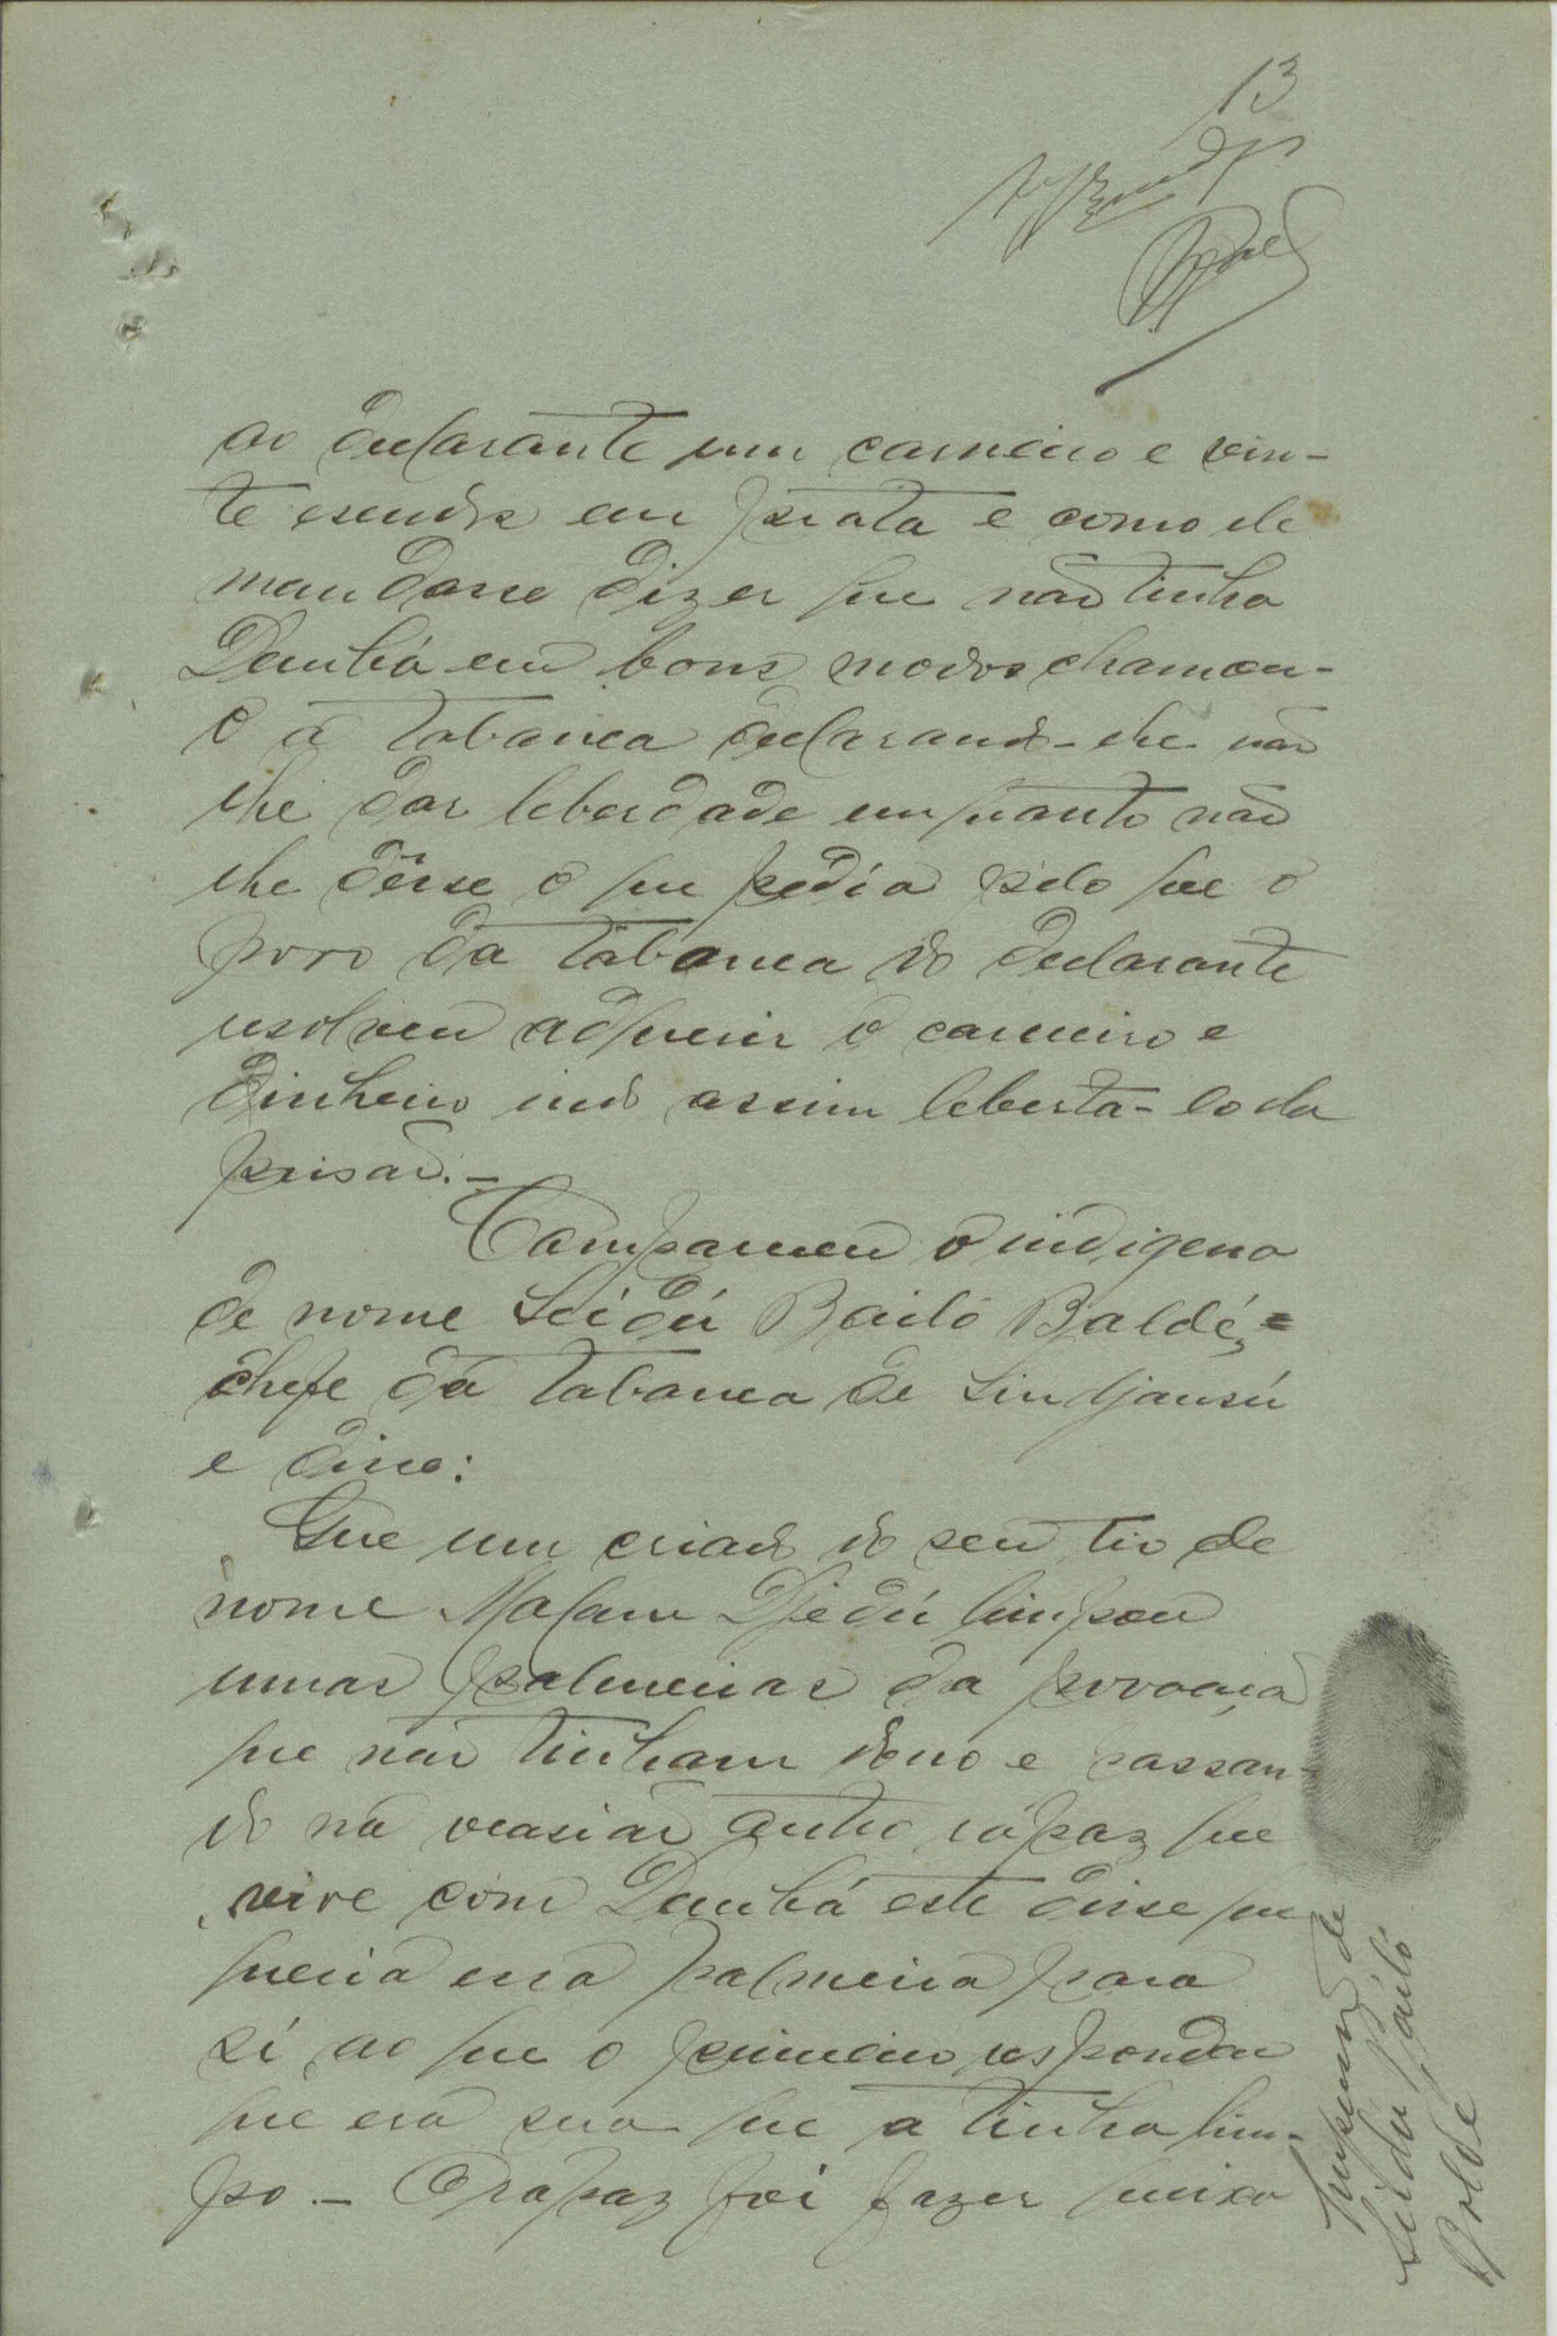 13
ao declarante um carneiro e vin-
te escudos em prata e como ele
mandasse dizer que não tinha
Dembá em bons modos chamou-
o á tabanca declarando-lhe não
lhe dar leberdade emquanto não
lhe désse o que pedia pelo que o
povo da tabanca do declarante
resolveu adquerir o carneiro e
dinheiro indo assim leberta-lo da
prisão.-
Compareceu o indigena
de nome Seidú Bailó Baldé, =
chefe da tabanca de Sin
e disse:
Que um criado do seu tio de
nome Malam Djedú limpou
umas palmeiras da povoação
que não tinham dono e passan-
do na ocasião outro rápaz que
vive com Dembá este disse que
queria essa palmeira para
sí ao que o primeiro respondeu
que era sua que a tinha lim-
po.- O rapaz foi fazer queixa
Impressão de
Seidú Bailó
Baldé